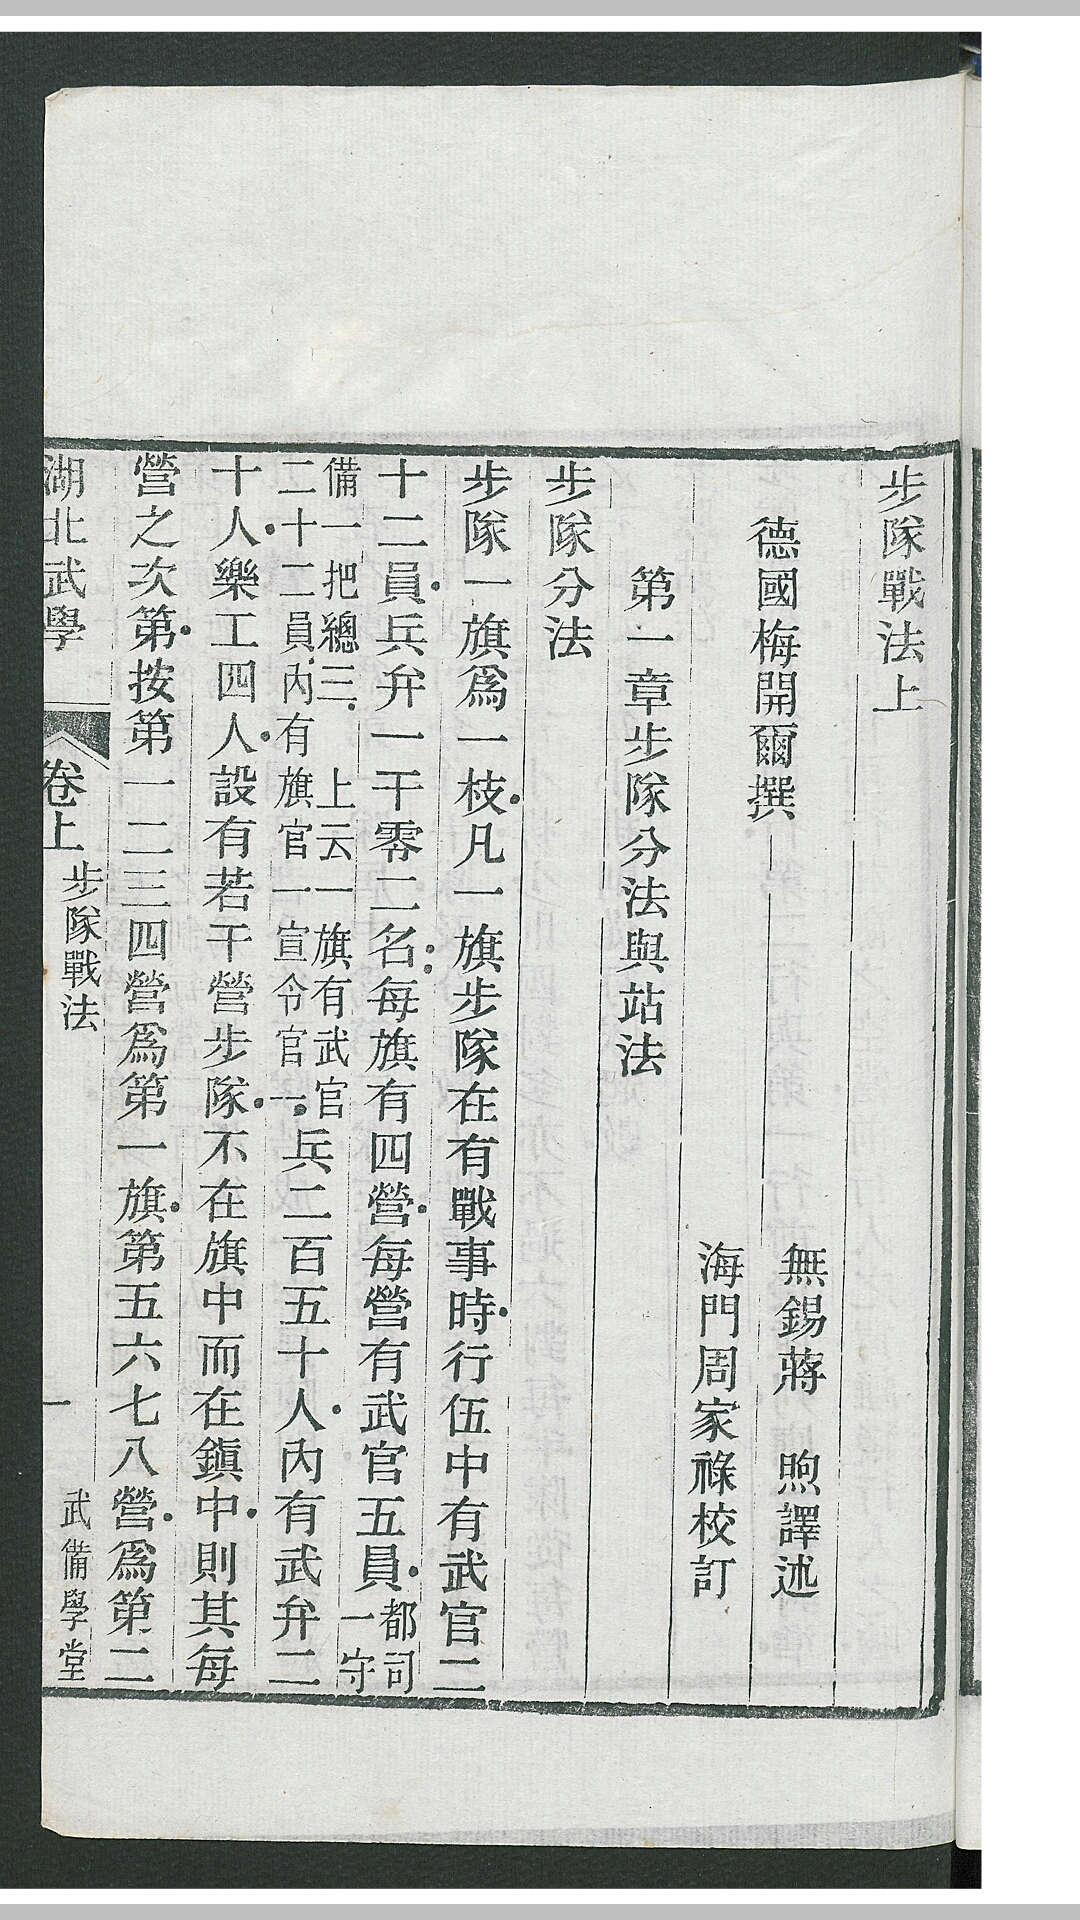 步隊戰法上
德國梅開爾撰　無錫蔣　煦譯述
海門周家祿校訂
第一章步隊分法與站法
步隊分法
步隊一旗爲一枝凡一旗步隊在有戰事時行伍中有武官二
十二員兵弁一千零二名每旗有四營每營有武官五員都司一守
備一把總三　上云一旗有武官二十二員內有旗官一宣令官一兵二百五十人內有武弁二
十人樂工四人設有若干營步隊不在旗中而在鎮中則其每
營之次第按第一二三四營爲第一旗第五六七八營爲第二
湖北武學　卷上　步隊戰法　一　武備學堂